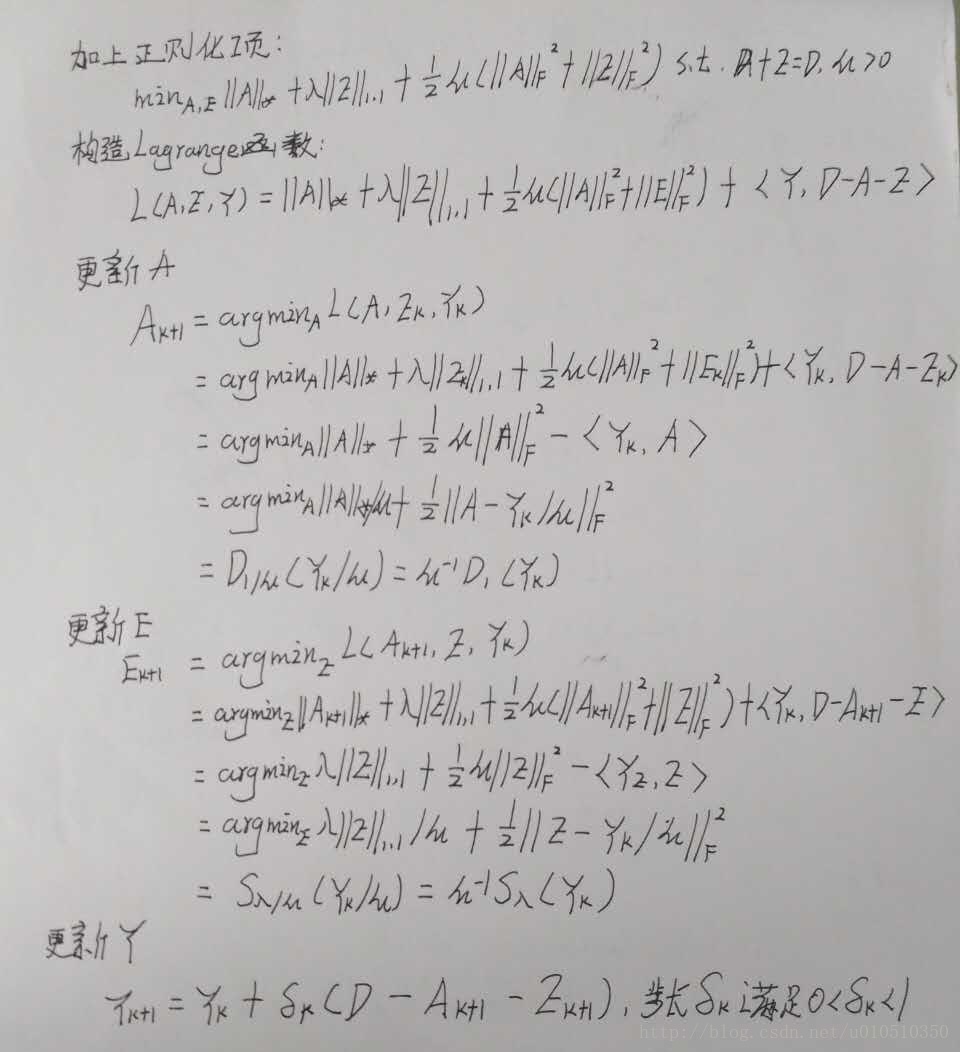 加上正则化项:
min_{A,E} ||A||_* + λ||Z||_{1,1} + 1/2 μ(||A||_F^2 + ||Z||_F^2) s.t. A+Z=D, μ>0
构造Lagrange函数:
L(A,Z,Y) = ||A||_* + λ||Z||_{1,1} + 1/2 μ(||A||_F^2+||E||_F^2) + <Y, D-A-Z>
更新A
A_{k+1} = argmin_A L(A, Z_k, Y_k)
= argmin_A ||A||_* + λ||Z_k||_{1,1} + 1/2 μ(||A||_F^2 + ||E_k||_F^2)+<Y_k, D-A-Z_k>
= argmin_A ||A||_* + 1/2 μ||A||_F^2 - <Y_k, A>
= argmin_A ||A||_*/μ + 1/2 ||A - Y_k/μ||_F^2
= D_{1/μ}(Y_k/μ) = μ^{-1} D_1(Y_k)
更新E
E_{k+1} = argmin_Z L(A_{k+1}, Z, Y_k)
= argmin_Z ||A_{k+1}||_* + λ||Z||_{1,1} + 1/2 μ(||A_{k+1}||_F^2+||Z||_F^2)+<Y_k, D-A_{k+1}-Z>
= argmin_Z λ||Z||_{1,1} + 1/2 μ||Z||_F^2 - <Y_Z, Z>
= argmin_Z λ||Z||_{1,1}/μ + 1/2 ||Z - Y_k/μ||_F^2
= S_{λ/μ}(Y_k/μ) = μ^{-1} S_λ(Y_k)
更新Y
Y_{k+1} = Y_k + δ_k(D - A_{k+1} - Z_{k+1}), 步长δ_k满足0<δ_k<1
http://blog.csdn.net/u010510350